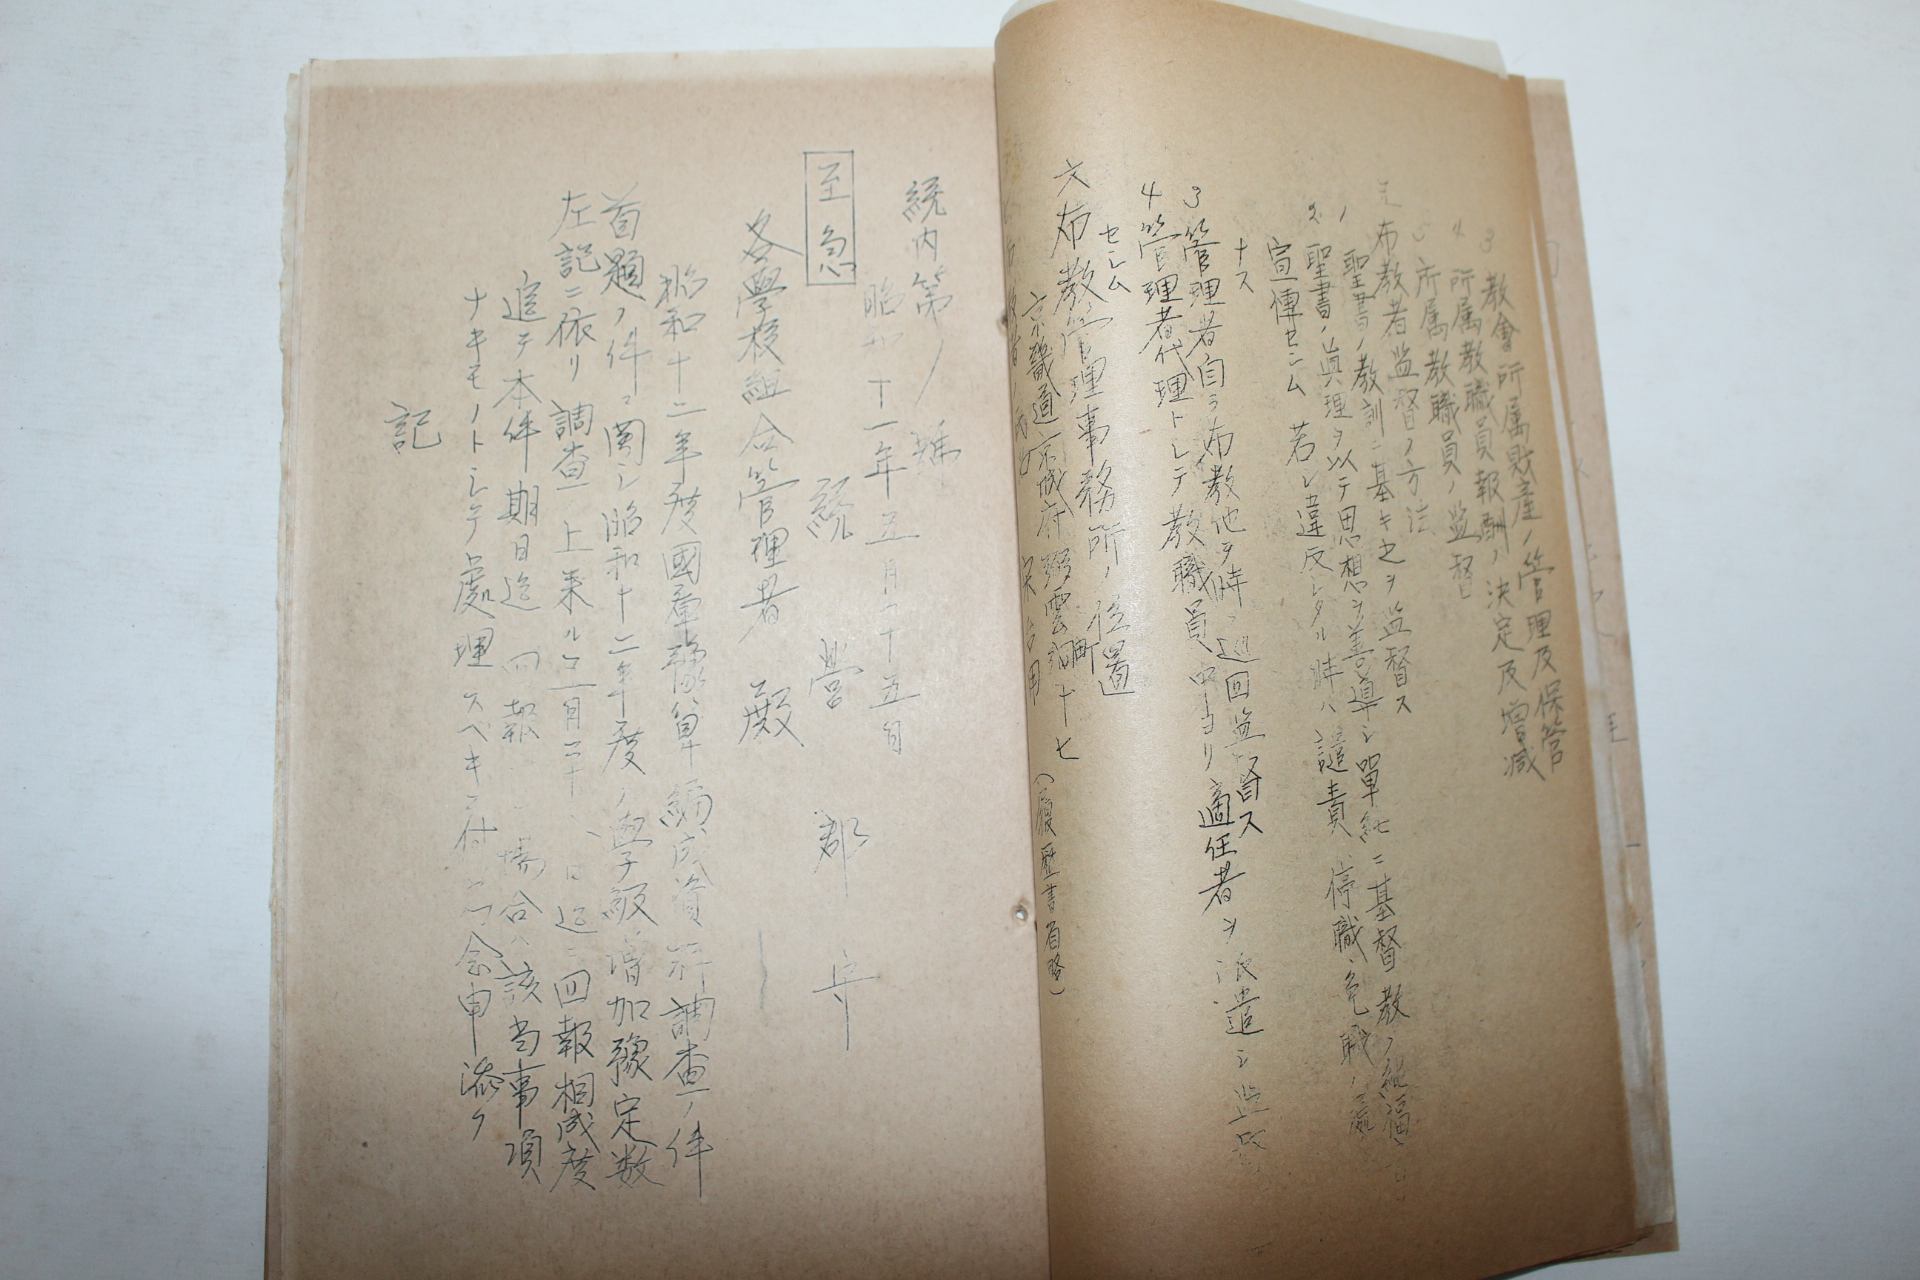 3 教會所属財産ノ管理及保管
4 所属教職員報酬ノ決定及増減
5 所属教職員ノ監督
五 布教者監督ノ方法
1 聖書ノ教訓ニ基キ之ヲ监督ス
2 聖書ノ眞理ヲ以テ思想ヲ善導シ單純ニ基督教ノ
宣傳セシム 若シ違反シタル時ハ譴責、停職、免職ノ
ナス
3 管理者自ラ布教他ヲ時々巡回监督ス
4 管理者代理トシテ教職員中ヨリ適任者ヲ派遣シ监督
セシム
六 布教管理事務所ノ位置
京畿道京城府弼雲洞町十七 (履歷書省略)
統内第 / 號
昭和十一年五月二十五日
至急
統 營 郡 守
各學校組合管理者 殿
昭和十二年度國庫豫算編成資料調査ノ件
首題ノ件ニ関シ昭和十二年度ノ學級増加豫定数
左記ニ依リ調査ノ上来ル 迄ニ回報相成度
追テ本件期日迄回報 場合ハ該当事項
ナキモノトシテ處理スベキニ付 念申添ク
記